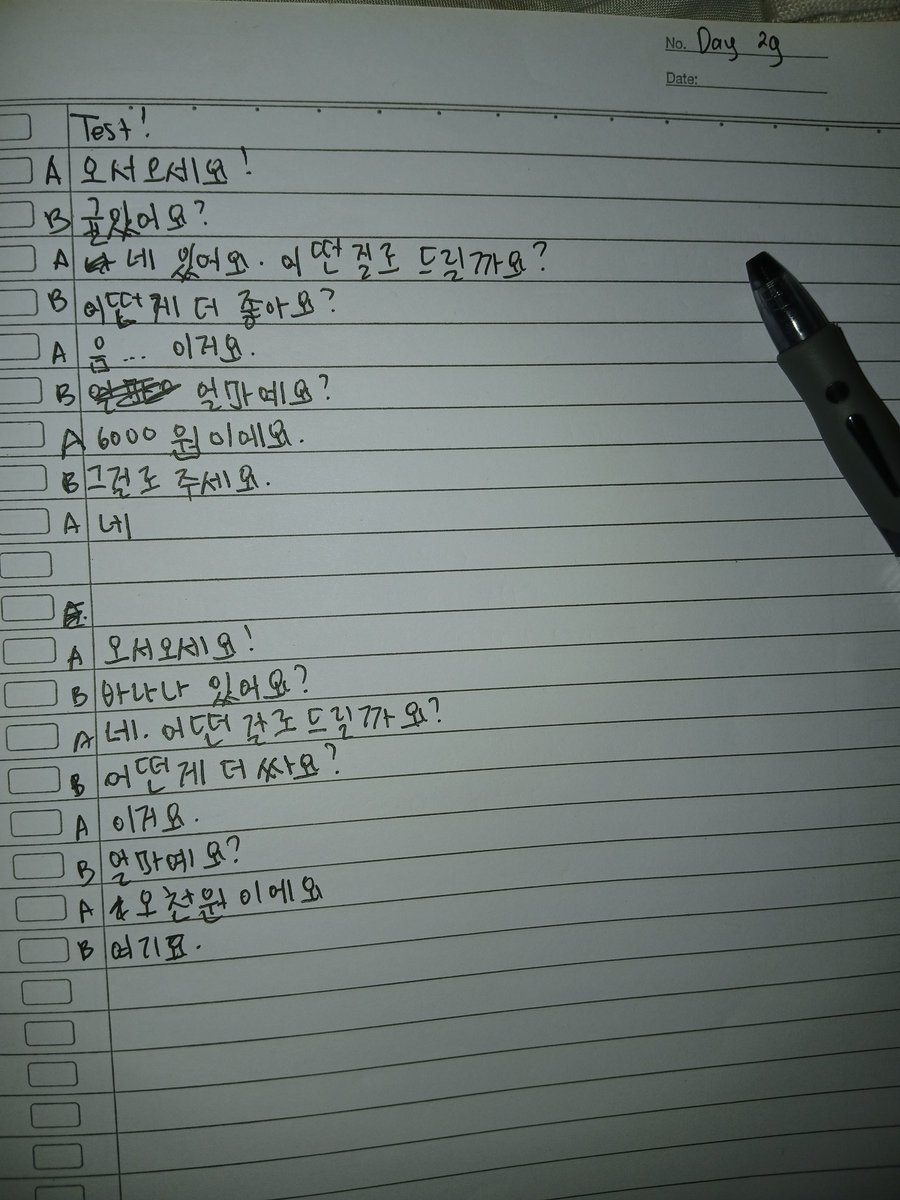 No. Day 29
Date:
Test!
A 오서오세요!
B 귤있어요?
A 네 있어요. 어떤 걸로 드릴까요?
B 어떤게 더 좋아요?
A 음... 이거요.
B 얼마예요?
A 6000 원이에요.
B 그걸로 주세요.
A 네
A 오서오세요!
B 바나나 있어요?
A 네. 어떤 걸로 드릴까요?
B 어떤게 더 싸요?
A 이거요.
B 얼마예요?
A 오천원이에요
B 여기요.